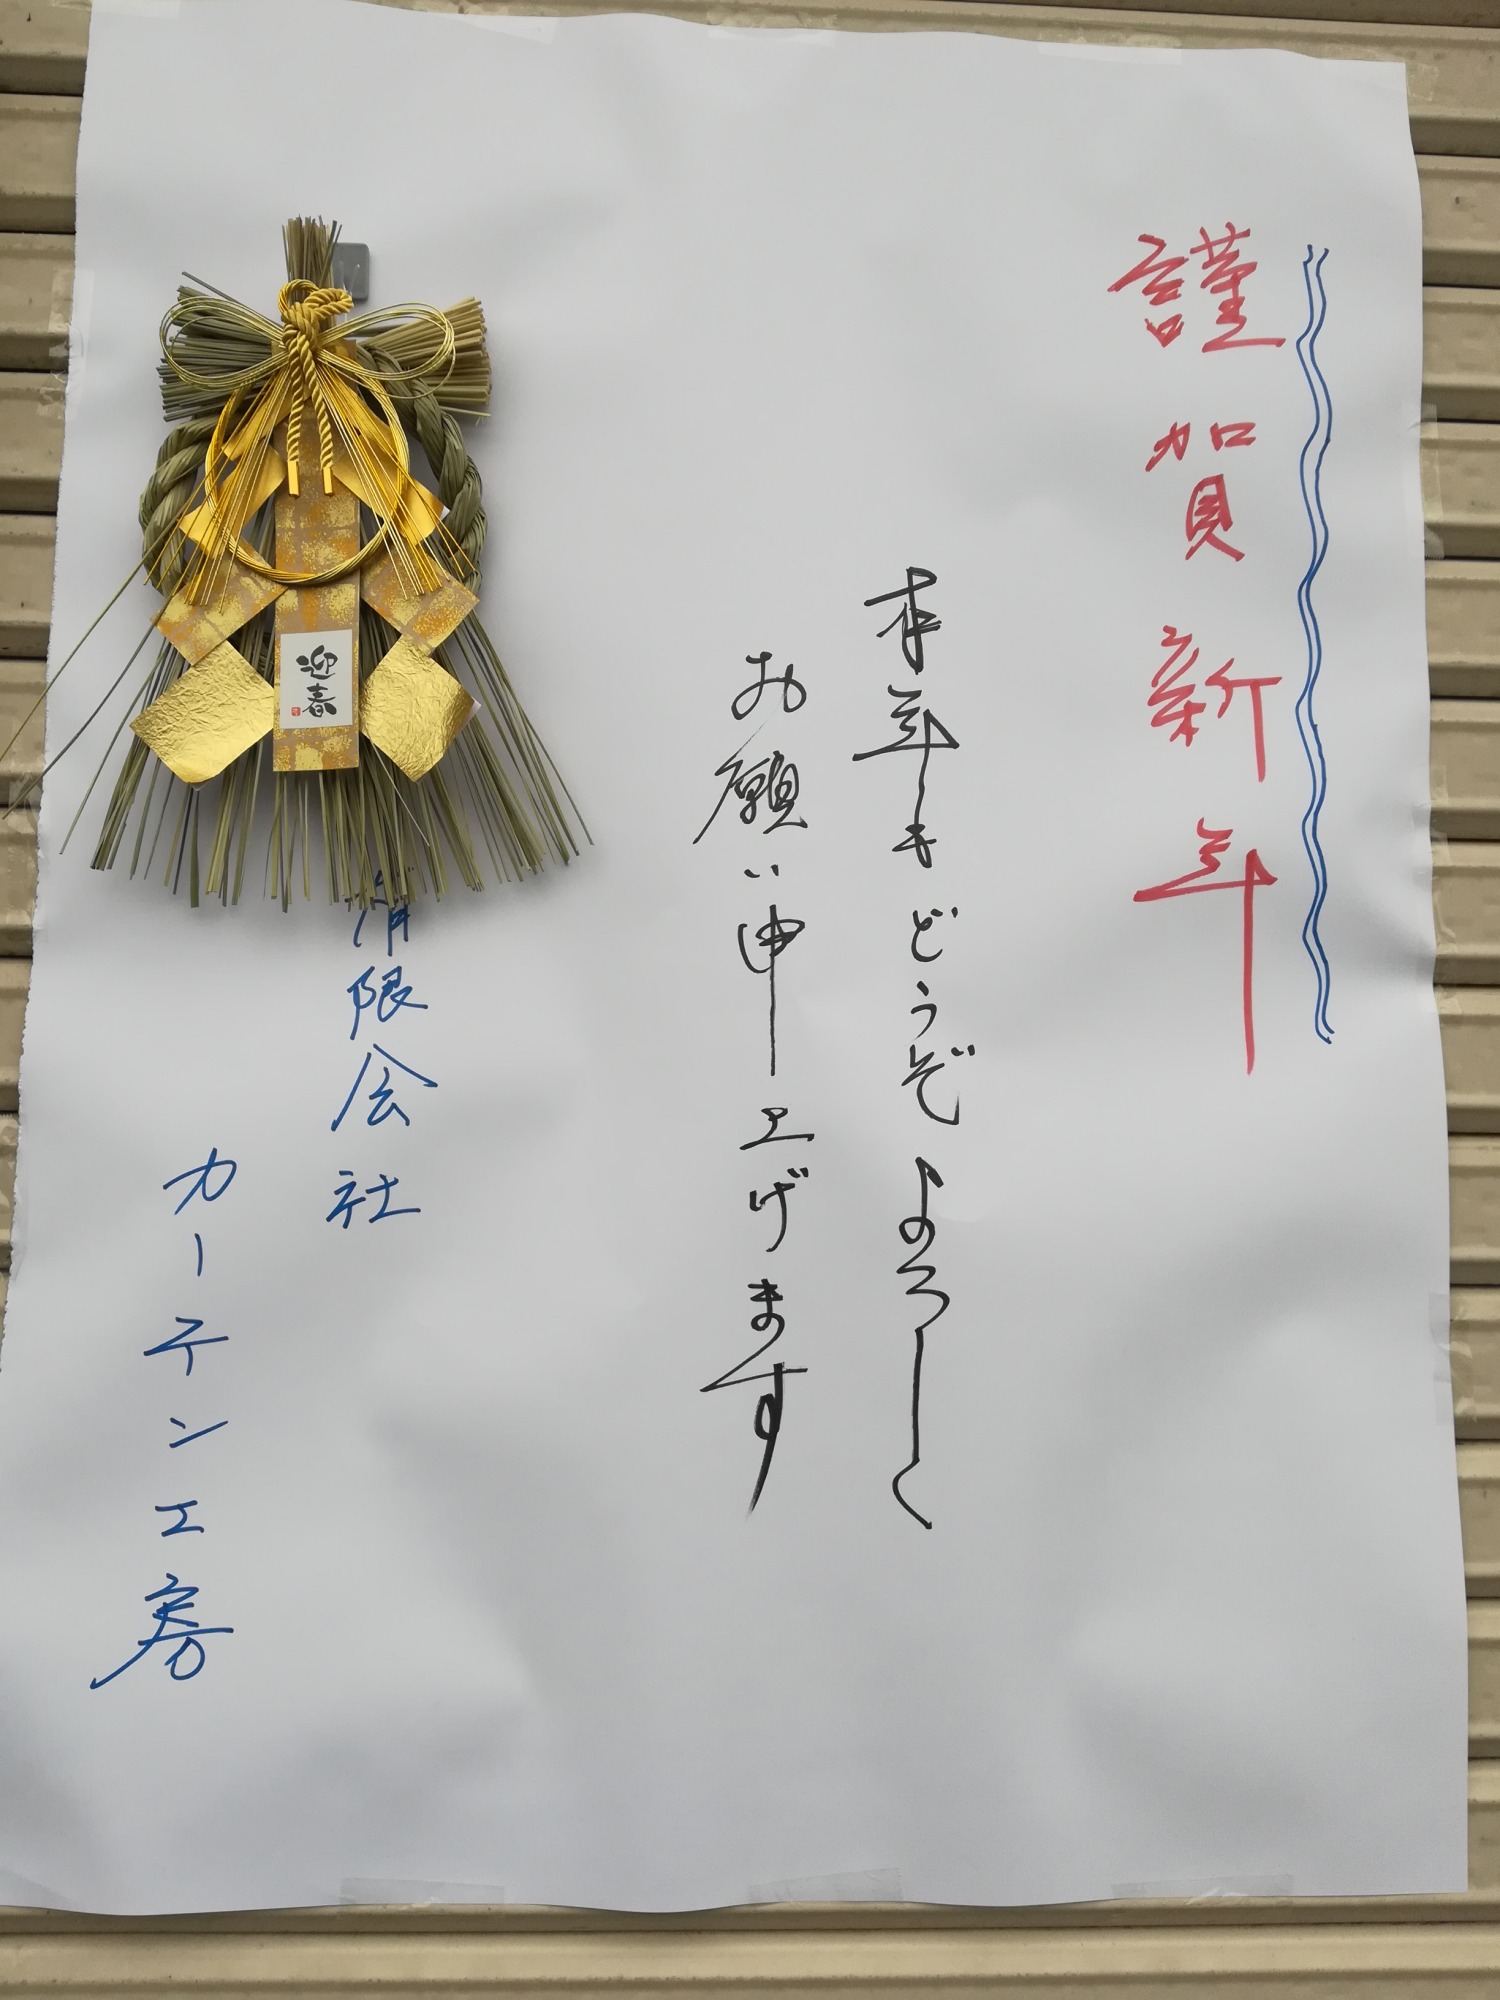 謹賀新年
本年もどうぞよろしく
お願い申し上げます
有限会社
カーテン工房
迎春